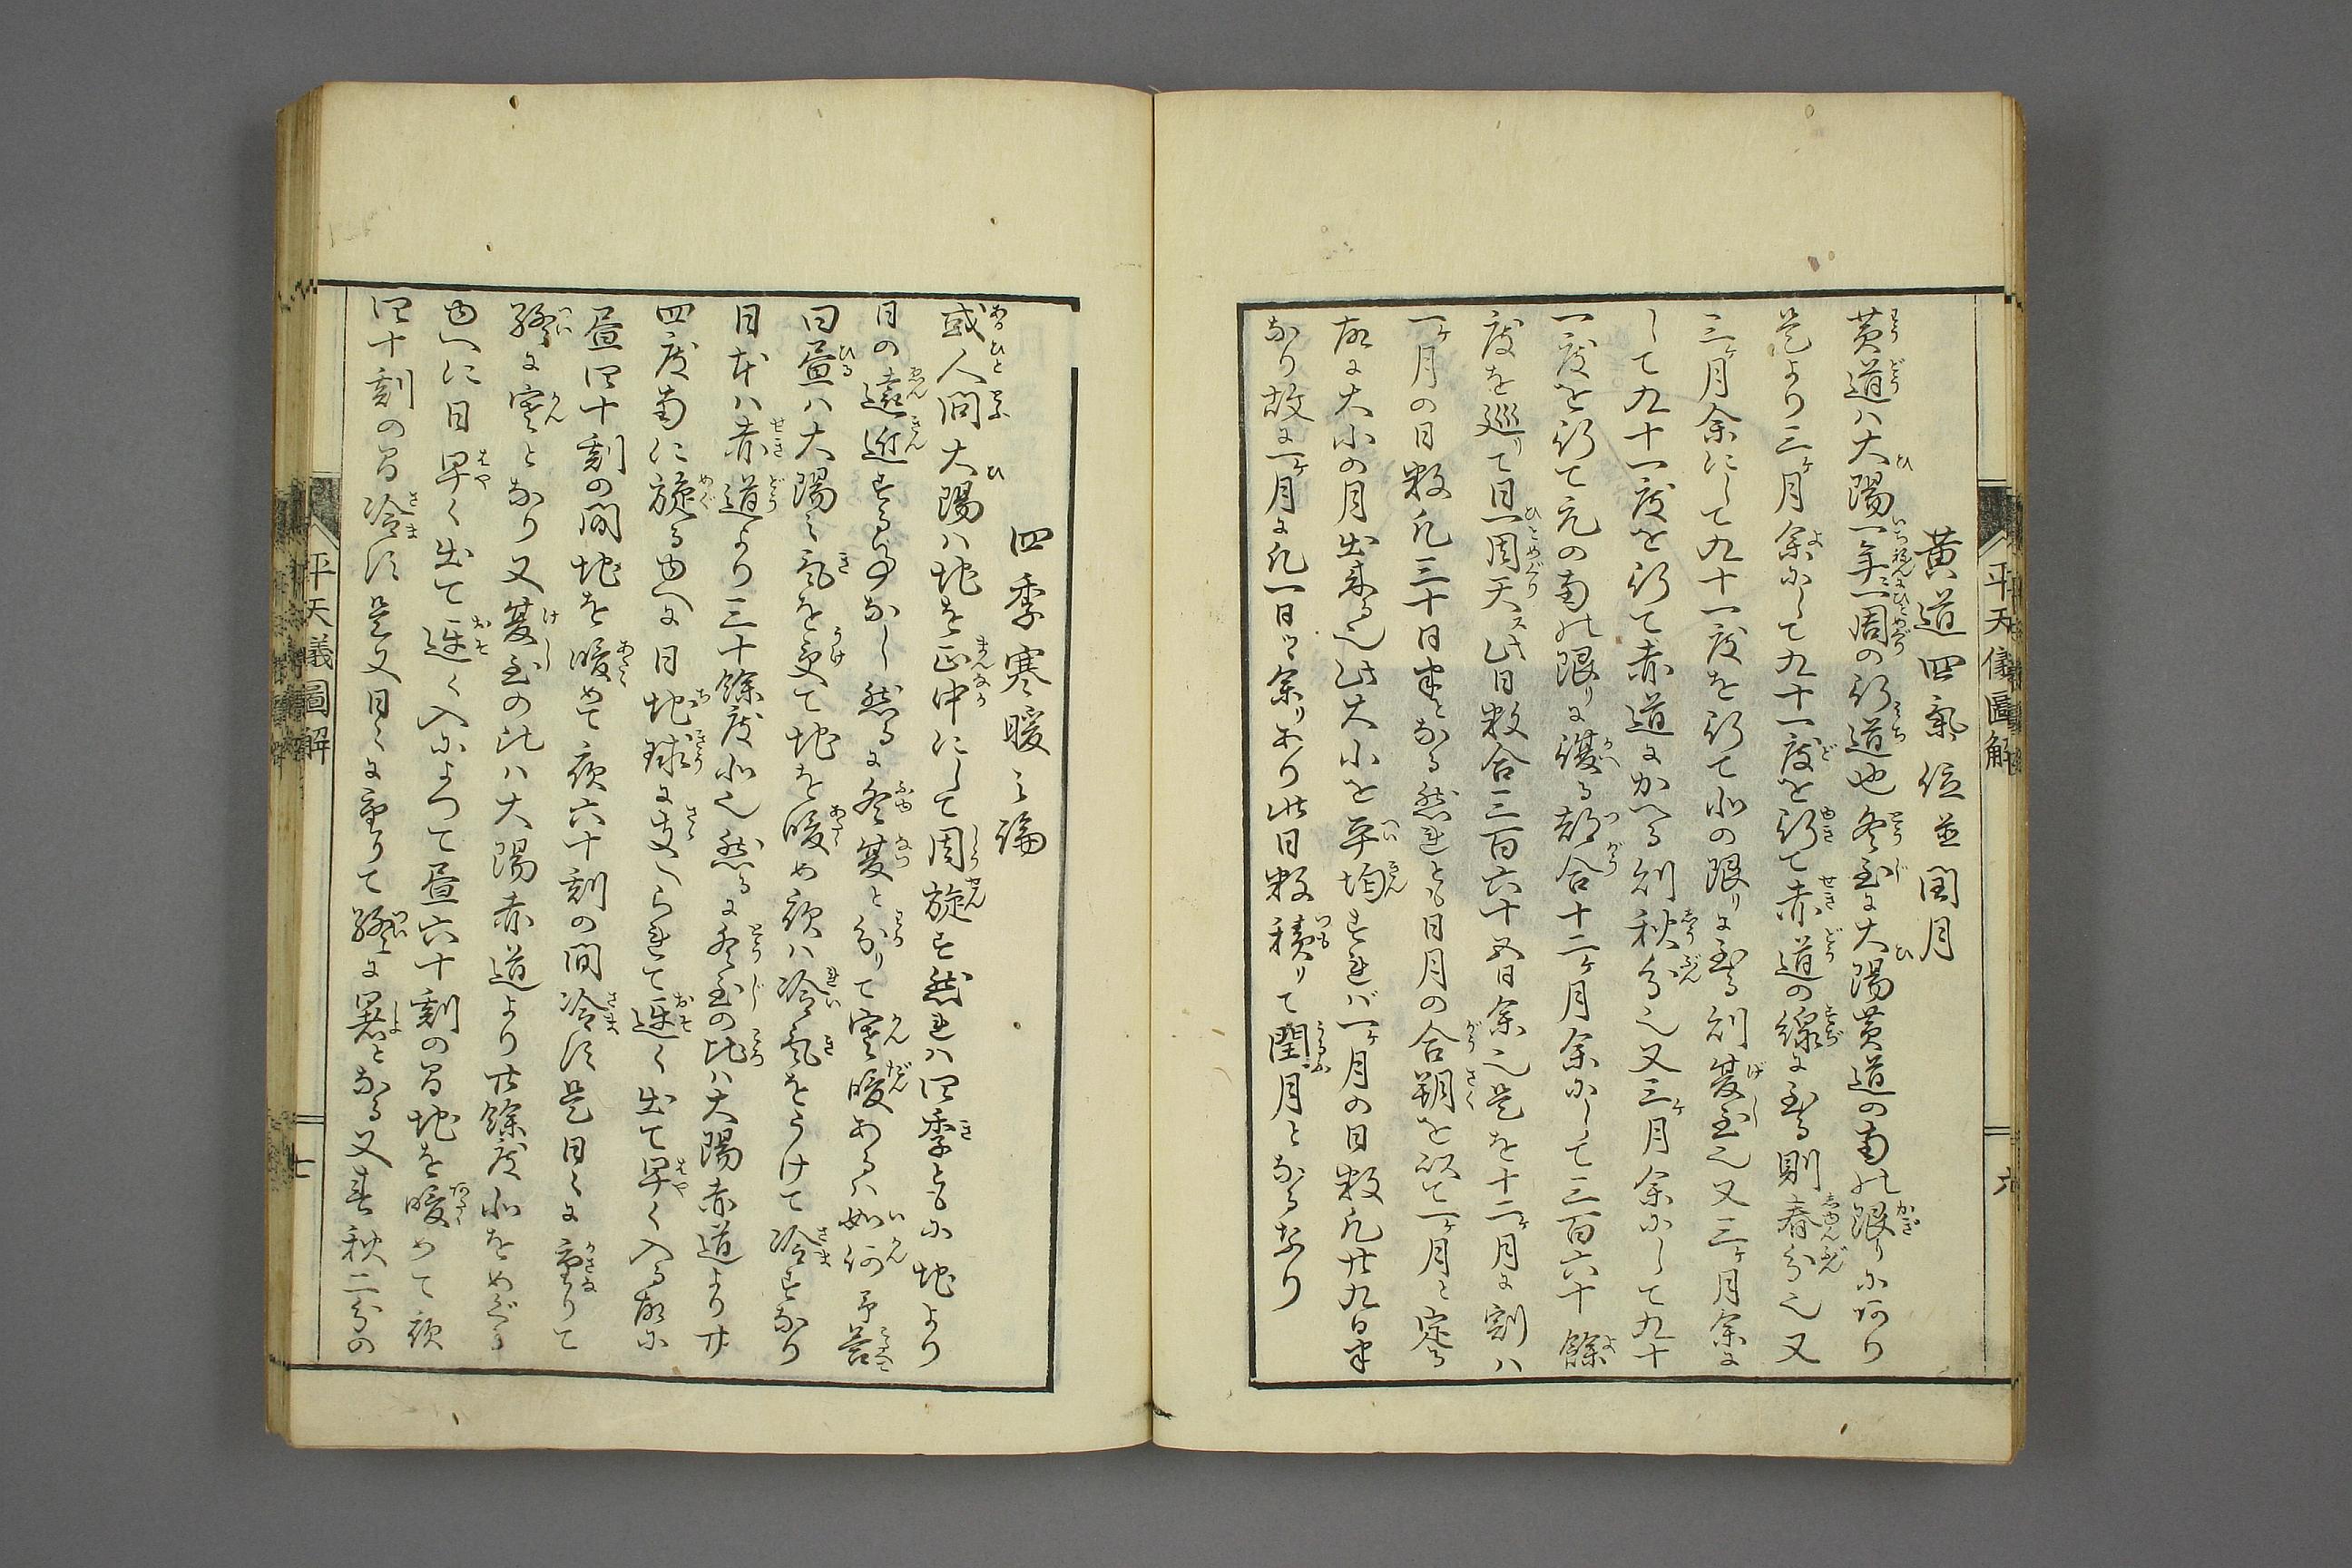 平天儀圖解
六
黄道四氣位並閏月
黄道ハ大陽一年ニ一周の行道也冬至に大陽黄道の南の限りにあり
是より三ヶ月余にして九十一度を行て赤道の線に至る則春分也又
三ヶ月余にして九十一度を行て北の限りに至る則夏至也又三ヶ月余に
して九十一度を行て赤道にかへる則秋分也又三ヶ月余にして九十
一度を行て元の南の限りに復る都合十二ヶ月余にして三百六十餘
度を巡りて日一周天ス此日数合三百六十五日余也是を十二ヶ月に割ハ
一ヶ月の日数凡三十日半となる然れとも日月の合朔を以て一ヶ月と定る
故に大小の月出来る也此大小を平均すれバ一ヶ月の日数凡廿九日半
なり故に一ヶ月に凡一日ツヽ余りあり此日数積りて閏月となるなり
四季寒暖之論
或人問大陽ハ地を正中にして周旋す然れハ四季ともに地より
日の遠近する事なし然るに冬夏と分りて寒暖あるハ如何予答
曰昼ハ大陽之氣を受て地を暖め夜ハ冷氣をうけて冷すなり
日本ハ赤道より三十餘度北也然るに冬至の比ハ大陽赤道より廿
四度南に旋るゆへに日地球に支へられて遅く出て早く入る故に
昼四十刻の間地を暖めて夜六十刻の間冷す是日々に重りて
終に寒となり又夏至の比ハ大陽赤道より廿餘度北をめぐる
ゆへに日早く出て遅く入によつて昼六十刻の間地を暖めて夜
四十刻の間冷す是又日々に重りて終に暑となる又春秋二分の
平天儀圖解
七